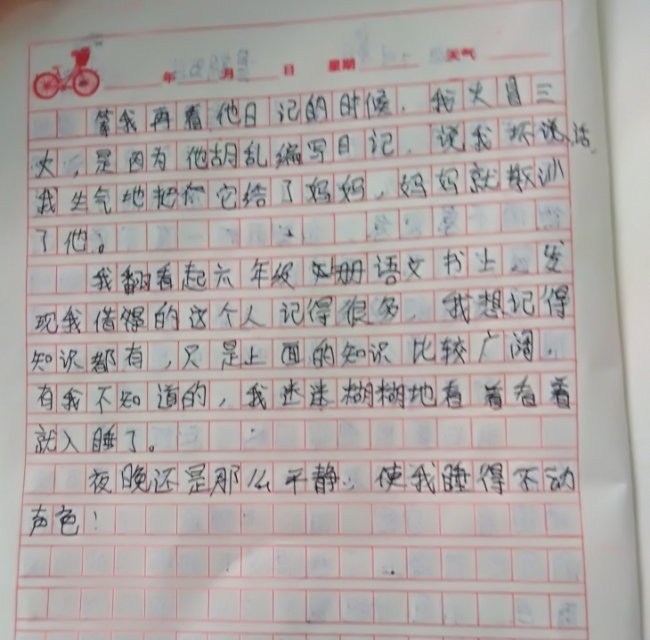 年 月 日 星期 天气
等我再看他日记的时候，我火冒三
火，是因为他胡乱编写日记，说我坏话，
我生气地把它给了妈妈，妈妈就教训
了他。
我翻看起六年级册语文书上 发
现我借得的这个人记得很多，我想记得
知识都有，只是上面的知识比较广阔，
有我不知道的，我迷迷糊糊地看着看着
就入睡了。
夜晚还是那么平静，使我睡得不动
声色！